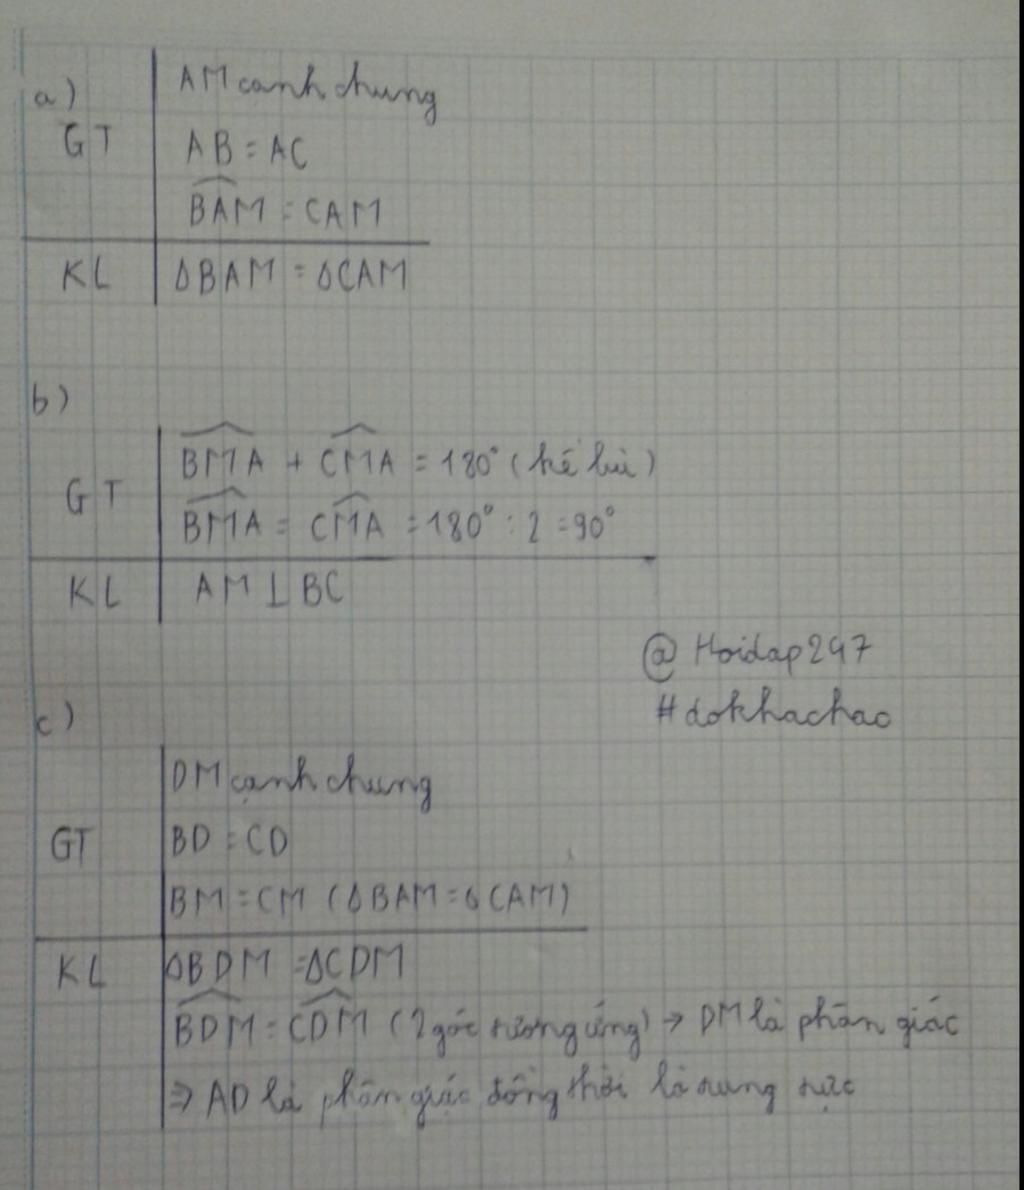 a)
AM cạnh chung
GT
AB = AC
BAM = CAM
KL
ΔBAM = ΔCAM
b)
BMA + CMA = 180° (kề bù)
GT
BMA = CMA = 180° : 2 = 90°
KL
AM ⊥ BC
@Hoidap247
#dokhachao
c)
DM cạnh chung
GT
BD = CD
BM = CM (ΔBAM = ΔCAM)
KL
ΔBDM = ΔCDM
BDM = CDM (2 góc tương ứng) → DM là phân giác
⇒ AD là phân giác đồng thời là trung trực